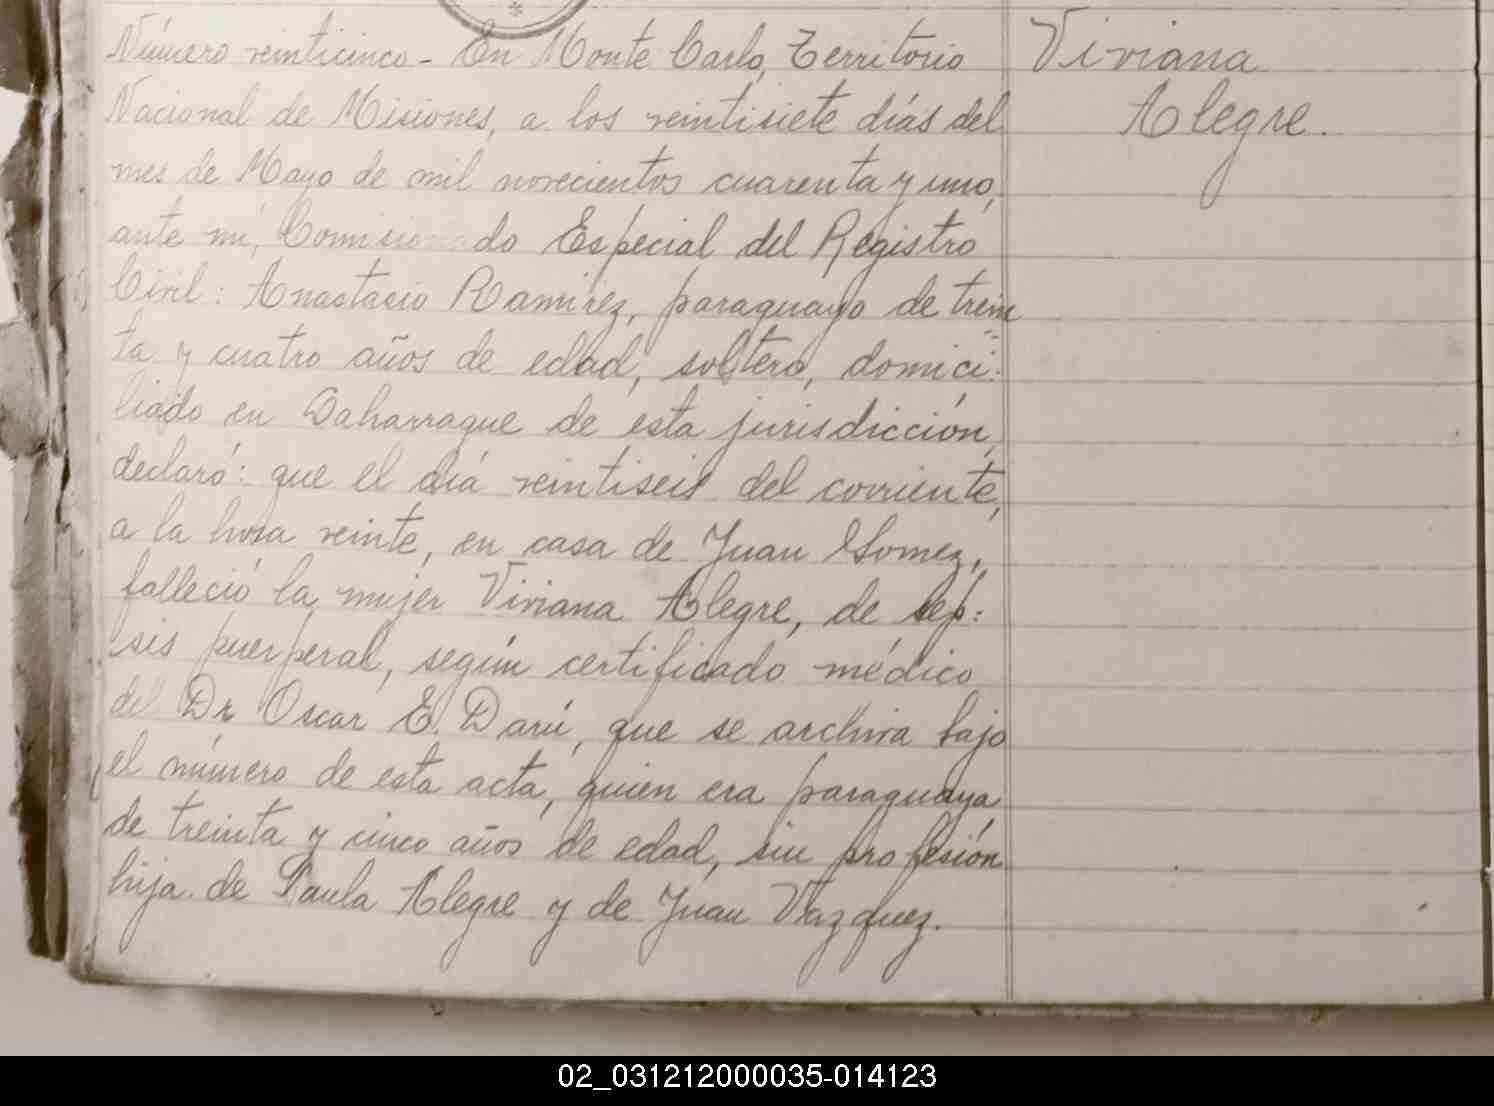 Número veinticinco - En Monte Carlo, Territorio
Nacional de Misiones, a los veintisiete días del
mes de Mayo de mil novecientos cuarenta y uno,
ante mí, Comisionado Especial del Registro
Civil: Anastasio Ramirez, paraguayo de trein
ta y cuatro años de edad, soltero, domici:
liado en Laharrague de esta jurisdicción,
declaró: que el día veintiseis del corriente,
a la hora veinte, en casa de Juan Gomez,
falleció la mujer Viviana Alegre, de sep:
sis puerperal, según certificado médico
del Dr Oscar E. Darú, que se archiva bajo
el número de esta acta, quien era paraguaya,
de treinta y cinco años de edad, sin profesión
hija de Paula Alegre y de Juan Vazquez.
Viviana
Alegre.
02_031212000035-014123